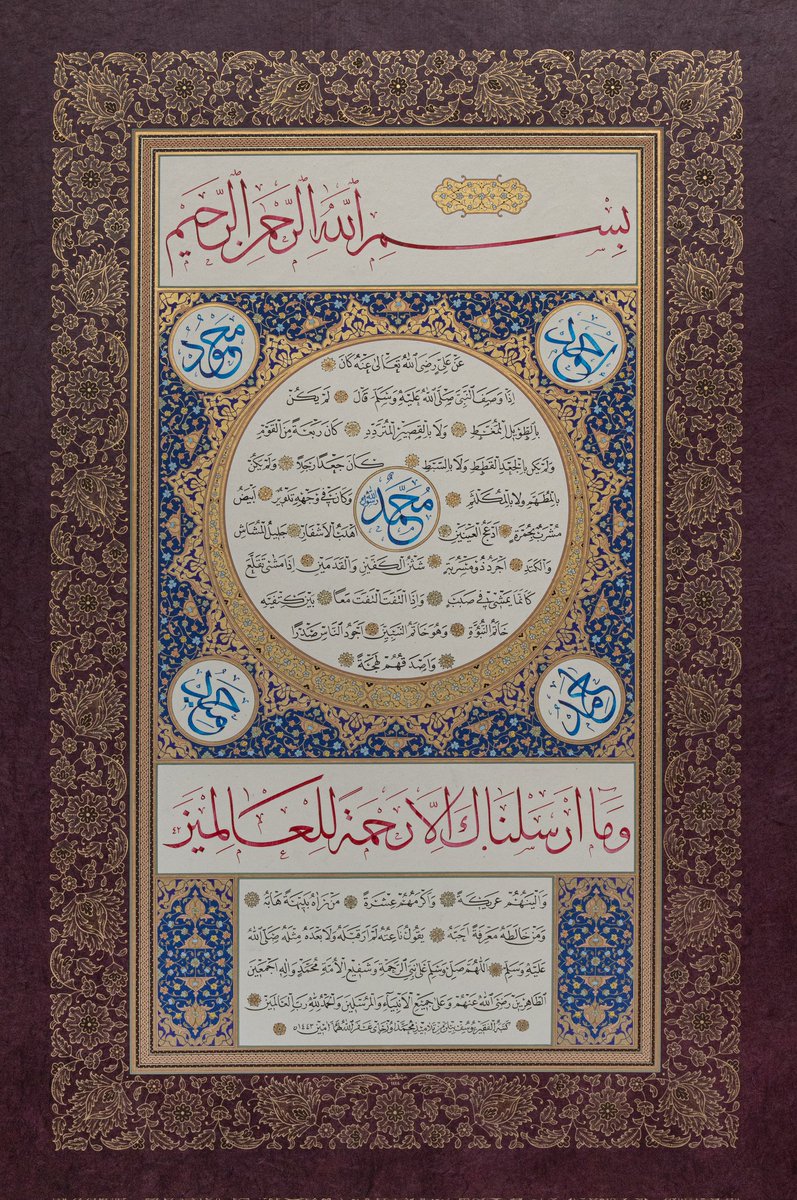 بِسْمِ اللّٰهِ الرَّحْمٰنِ الرَّحِيمِ
محمود
احمد
عَنْ عَلِيٍّ رَضِيَ اللّٰهُ تَعَالٰى عَنْهُ كَانَ
اِذَا وَصَفَ النَّبِيَّ صَلَّى اللّٰهُ عَلَيْهِ وَسَلَّمَ قَالَ لَمْ يَكُنْ
بِالطَّوِيلِ الْمُمَّغِطِ وَلَا بِالْقَصِيرِ الْمُتَرَدِّدِ كَانَ رَبْعَةً مِنَ الْقَوْمِ
وَلَمْ يَكُنْ بِالْجَعْدِ الْقَطَطِ وَلَا بِالسَّبِطِ كَانَ جَعْدًا رَجِلًا وَلَمْ يَكُنْ
بِالْمُطَهَّمِ وَلَا بِالْمُكَلْثَمِ وَكَانَ فِي وَجْهِهِ تَدْوِيرٌ اَبْيَضُ
مُحَمَّدٌ رسول الله
مُشْرَبٌ بِحُمْرَةٍ اَدْعَجُ الْعَيْنَيْنِ اَهْدَبُ الْاَشْفَارِ جَلِيلُ الْمُشَاشِ
وَالْكَتَدِ اَجْرَدُ ذُو مَسْرُبَةٍ شَثْنُ الْكَفَّيْنِ وَالْقَدَمَيْنِ اِذَا مَشٰى تَقَلَّعَ
كَاَنَّمَا يَمْشِي فِي صَبَبٍ وَاِذَا الْتَفَتَ الْتَفَتَ مَعًا بَيْنَ كَتِفَيْهِ
خَاتَمُ النُّبُوَّةِ وَهُوَ خَاتَمُ النَّبِيِّينَ اَجْوَدُ النَّاسِ صَدْرًا
وَاَصْدَقُهُمْ لَهْجَةً
محمد
وَمَا اَرْسَلْنَاكَ اِلَّا رَحْمَةً لِلْعَالَمِينَ
وَاَلْيَنُهُمْ عَرِيكَةً وَاَكْرَمُهُمْ عِشْرَةً مَنْ رَاٰهُ بَدِيهَةً هَابَهُ
وَمَنْ خَالَطَهُ مَعْرِفَةً اَحَبَّهُ يَقُولُ نَاعِتُهُ لَمْ اَرَ قَبْلَهُ وَلَا بَعْدَهُ مِثْلَهُ صَلَّى اللّٰهُ
عَلَيْهِ وَسَلَّمَ اَللّٰهُمَّ صَلِّ وَسَلِّمْ عَلٰى نَبِيِّ الرَّحْمَةِ وَشَفِيعِ الْاُمَّةِ مُحَمَّدٍ وَاٰلِهِ اَجْمَعِينَ
الطَّاهِرِينَ رَضِيَ اللّٰهُ عَنْهُمْ وَعَلٰى جَمِيعِ الْاَنْبِيَاءِ وَالْمُرْسَلِينَ وَالْحَمْدُ لِلّٰهِ رَبِّ الْعَالَمِينَ
كتبه الفقير يوسف من تلاميذ محمد غفر الله لهما آمين ١٤٤٣